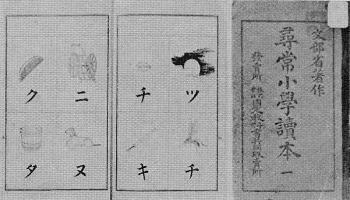 文部省著作
尋常小學讀本 一
ツ
チ
チ
キ
ニ
ク
ヌ
タ